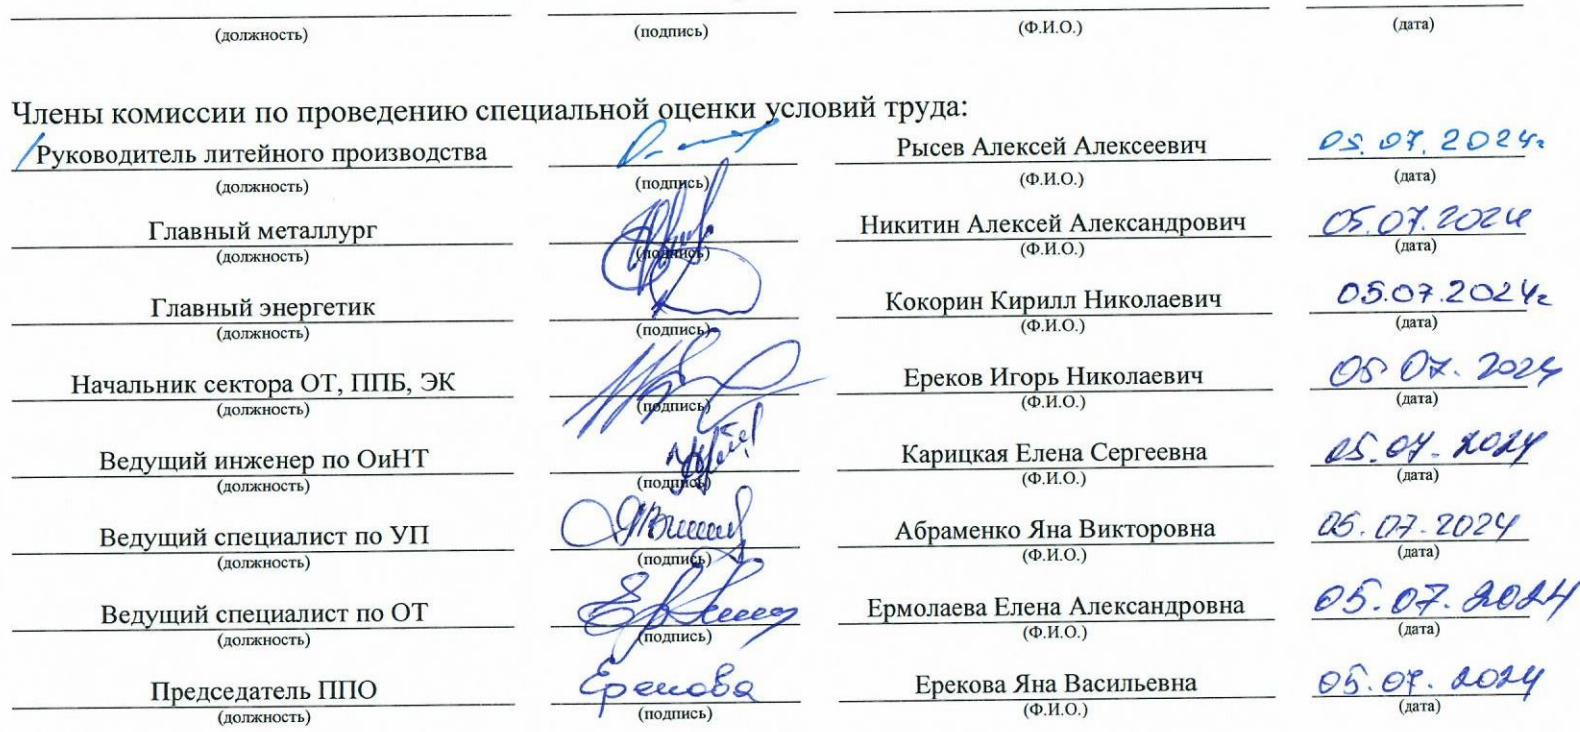 (должность) (подпись) (Ф.И.О.) (дата)
Члены комиссии по проведению специальной оценки условий труда:
Руководитель литейного производства Рысев Алексей Алексеевич 05.07.2024г
(должность) (подпись) (Ф.И.О.) (дата)
Главный металлург Никитин Алексей Александрович 05.07.2024
(должность) (подпись) (Ф.И.О.) (дата)
Главный энергетик Кокорин Кирилл Николаевич 05.07.2024г
(должность) (подпись) (Ф.И.О.) (дата)
Начальник сектора ОТ, ППБ, ЭК Ереков Игорь Николаевич 05.07.2024
(должность) (подпись) (Ф.И.О.) (дата)
Ведущий инженер по ОиНТ Карицкая Елена Сергеевна 05.07.2024
(должность) (подпись) (Ф.И.О.) (дата)
Ведущий специалист по УП Абраменко Яна Викторовна 05.07.2024
(должность) (подпись) (Ф.И.О.) (дата)
Ведущий специалист по ОТ Ермолаева Елена Александровна 05.07.2024
(должность) (подпись) (Ф.И.О.) (дата)
Председатель ППО Ерекова Ерекова Яна Васильевна 05.07.2024
(должность) (подпись) (Ф.И.О.) (дата)